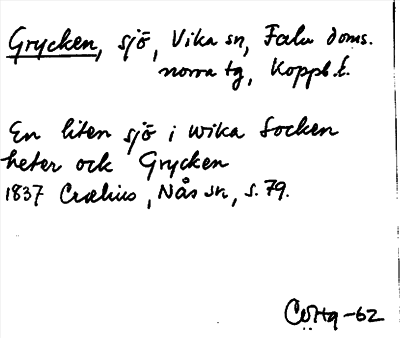 Grycken, sjö, Vika sn, Falu doms.
norra tg, Koppb.l.
En liten sjö i Wika Socken
heter ock Grycken
1837 Crælius, Nås sn, s. 79.